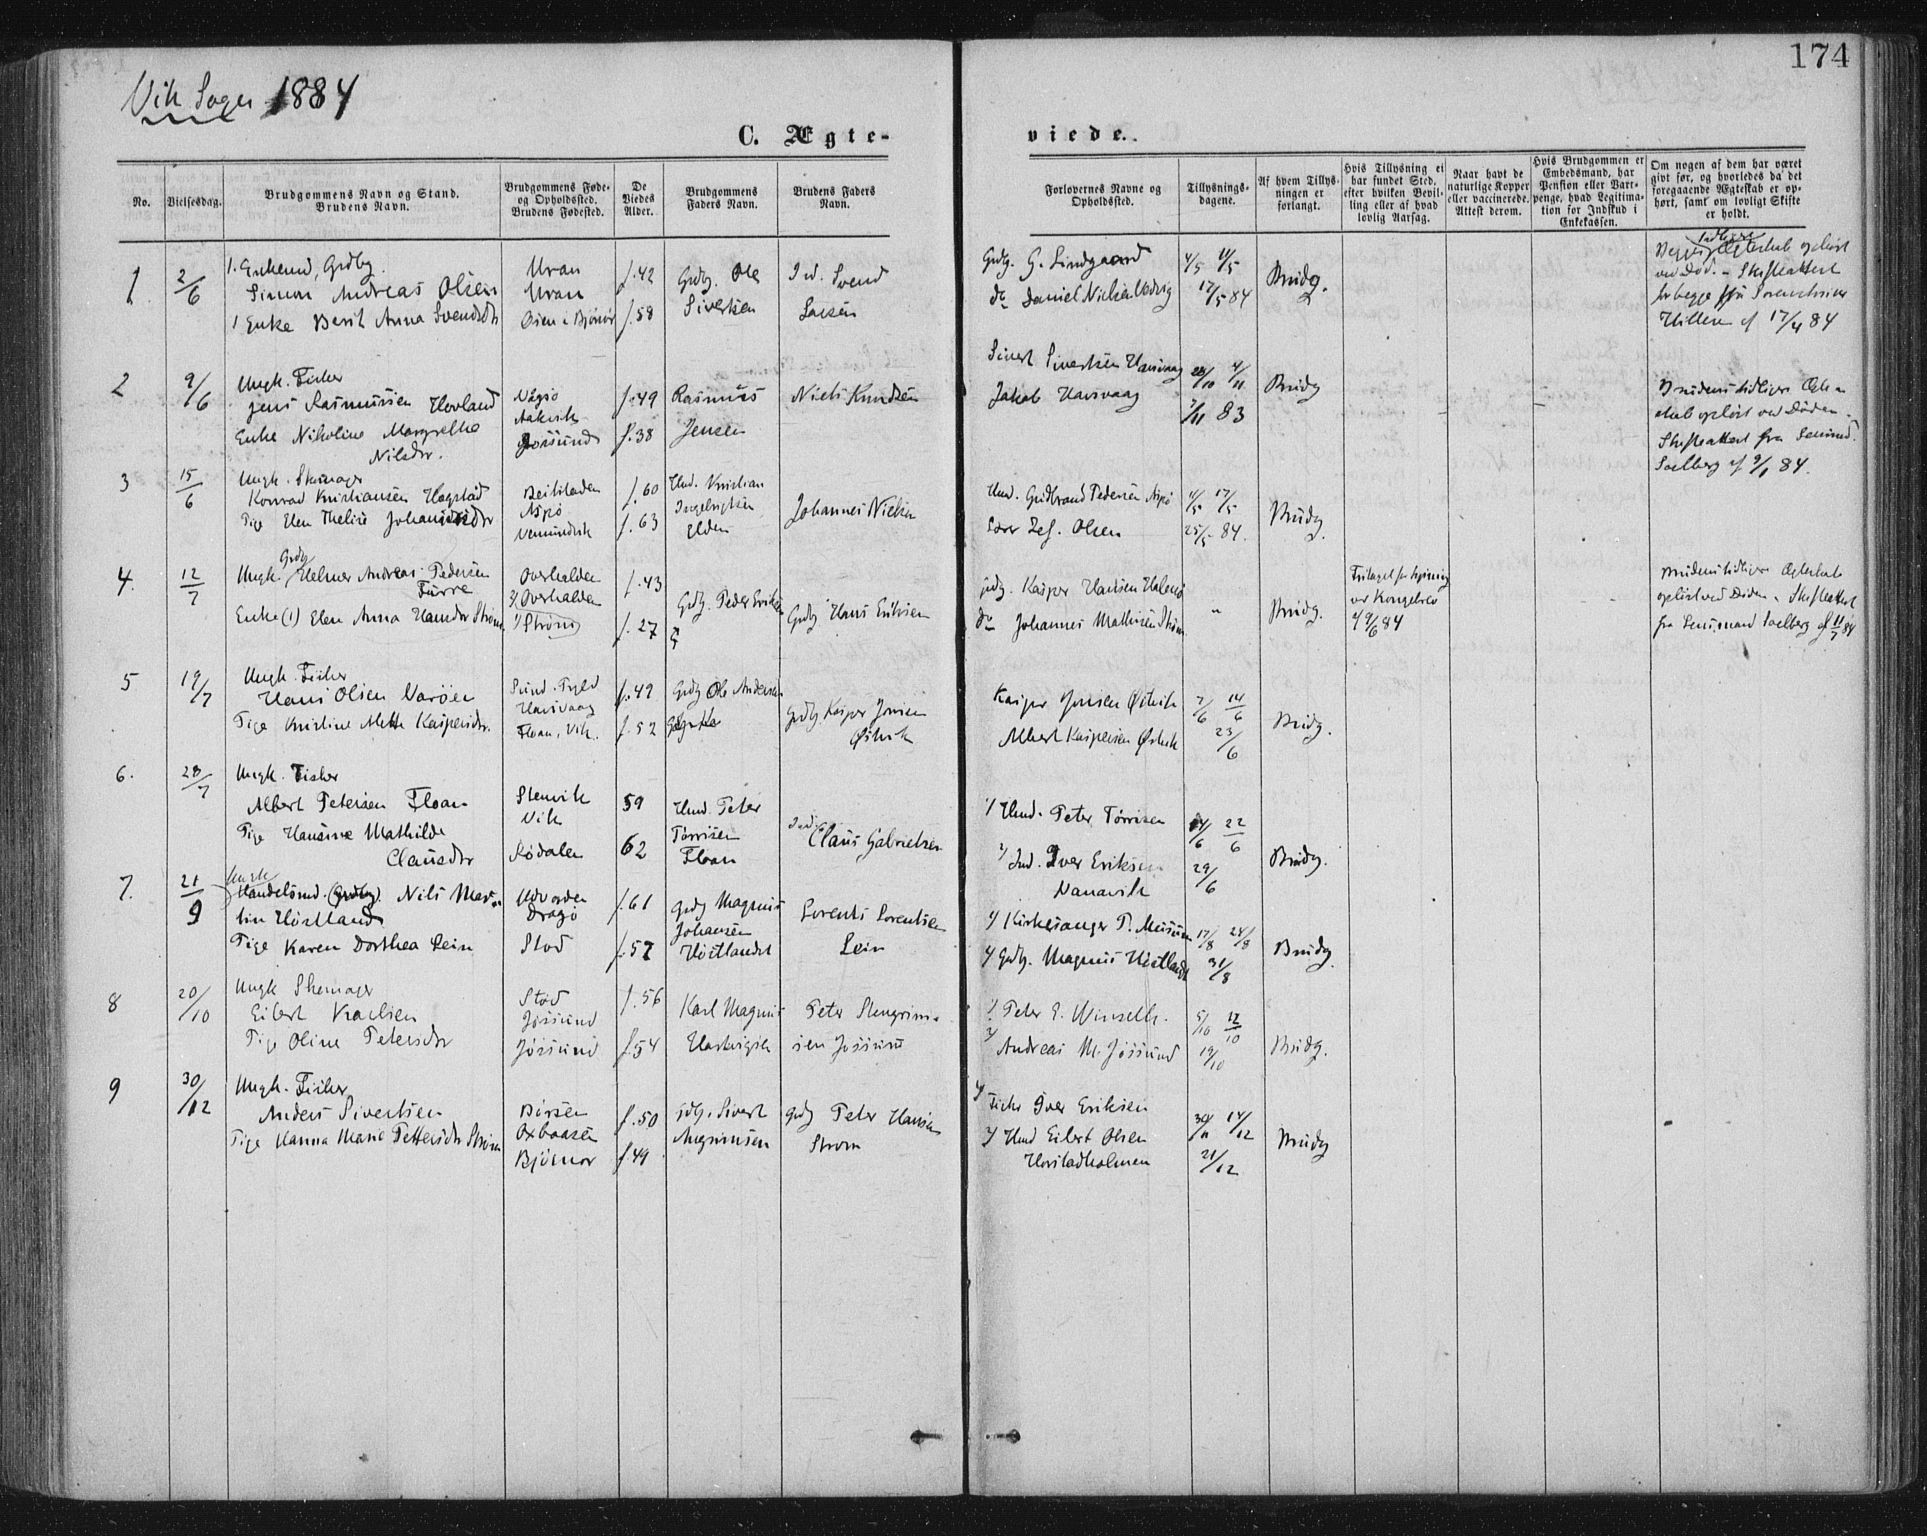 174
Vik Sogn 1884
C. Ægte-
viede.
No.
Vielsesdag.
Brudgommens Navn og Stand.
Brudens Navn.
Brudgommens Føde-
og Opholdssted.
Brudens Fødested.
De
Viedes
Alder.
Brudgommens
Faders Navn.
Brudens Faders
Navn.
Forlovernes Navne og
Opholdssted.
Tillysnings-
dagene.
Af hvem Tillys-
ningen er
forlangt.
Hvis Tillysning ei
har fundet Sted,
efter hvilken Bevil-
ling eller af hvad
lovlig Aarsag.
Naar havt de
naturlige Kopper
eller vaccinerede.
Attest derom.
Hvis Brudgommen er
Embedsmand, har
Pension eller Vart-
penge, hvad Legitima-
tion for Indskud i
Enkekassen.
Om nogen af dem har været
givt før, og hvorledes da det
foregaaende Ægteskab er op-
hørt, samt om lovligt Skifte
er holdt.
1. 2/6
1. Enkemd, Grdbg.
Simon Andreas Olsen
1 Enke Berit Anna Svendsdr
Uran
Uran
Osen i Bjørnør
f. 42
f. 58
Grdbg. Ole
Sivertsen
Ind. Svend
Grdbg. G. Lindgaard
do Daniel Nielsen
4/5 11/5
17/5 84
Brudg.
Begges Ægteskab opløst
ved Død. - Skifteattest
for begge fra Sorenskriver
af 17/4 84
2 9/6
Ungk. Fisker
Jens Rasmussen Hovland
Enke Nikoline Margrethe
Nilsdr.
Jøssund
f. 49
f. 38
Rasmus
Jensen
Niels Knudsen
Sivert Sivertsen Hansvaag
Jakob Hansvaag
4/11
83
Brudg
Brudens tidligere Ægte-
skab opløst ved Døden.
Skifteattest fra Lensmd.
Sælberg af 9/1 84.
3 15/6
Ungk. Skomager
Konrad Kristiansen Hagstad
Pige Elen Theline Johannesdr
Beitstaden
Aspø
f. 60
f. 63
Hmd. Kristian
Ingebrigtsen
Elden
Johannes Nielsen
Hmd. Gudbrand Pedersen Aspø
Zef. Olsen
11/5 17/5
25/5 84.
Brudg.
4. 12/7
Grdbg
Ungk. Helmer Andreas Pedersen
Furre
Enke (1) Elen Anna Hansdr Strøm
Overhalden
2/ Overhalden
1/ Strøm
f. 43
f. 27
Grdbg. Peder Eriksen
Grdbg Hans Eriksen
Kasper Hansen
do Johannes Mathisen Strøm
"
Brudg.
Fritaget for lysning
ved Kongebrev
af 9/6 84
Brudens tidligere Ægteskab
opløst ved Døden. Skifteattest
fra Lensmand Sælberg af 11/7 84
5 19/7
Ungk. Fisker
Hans Olsen Varøen
Pige Kristine Mette Kaspersdr.
Hansvaag
Floan, Vik.
f. 49
f. 52
Grdbg Ole Andersen
Grdbg Kasper Jonsen
Østvik
Kasper Jonsen Østvik
Albert Kaspersen Østvik
7/6 14/6
23/6
Brudg.
6. 28/7
Ungk. Fisker
Albert Petersen Floan
Pige Hansine Mathilde
Clausdr
Stenvik
Vik
Rødalen
59
62
Hmd. Peter
Tørrisen
Floan
Ind.
Claus Gabrielsen
1/ Hmd. Peter Tørrisen
2/ Ind. Iver Eriksen
Nanavik
14/6 22/6
29/6
Brudg.
7. 21/9
Ungk
Handelsmd. (Grdbg) Nils Mar-
tin Høstland
Pige Karen Dorthea Lein
Dragø
Stod
f. 61
f. 57
Grdbg Magnus
Johansen
Høstlandet
Lorents Lorentsen
Lein
1/ Kirkesanger P. Musum
2/ Grdbg. Magnus Høstlandet
17/8 24/8
31/8
Brudg
8 20/10
Ungk Skomager
Eilert Karlsen
Pige Oline Petersdr
Stod
Jøssund
Jøssund
f. 56
f. 54
Karl Magnus
Peter Stengrim-
sen Jøssund
1/ Peter E.
2/ Andreas M. Jøssund
5/10 12/10
19/10
Brudg.
9 30/12
Ungk. Fisker
Anders Sivertsen
Pige Hanna Marie Pettersdr Strøm
Børsen
Oxbaasen
Bjørnør
f. 50
f. 49
Grdbg. Sivert
Grdbg Peter Hansen
Strøm
1/ Fisker Iver Eriksen
2/ Hmd Eilert Olsen
Hovstadholmen
30/11 14/12
21/12
Brudg